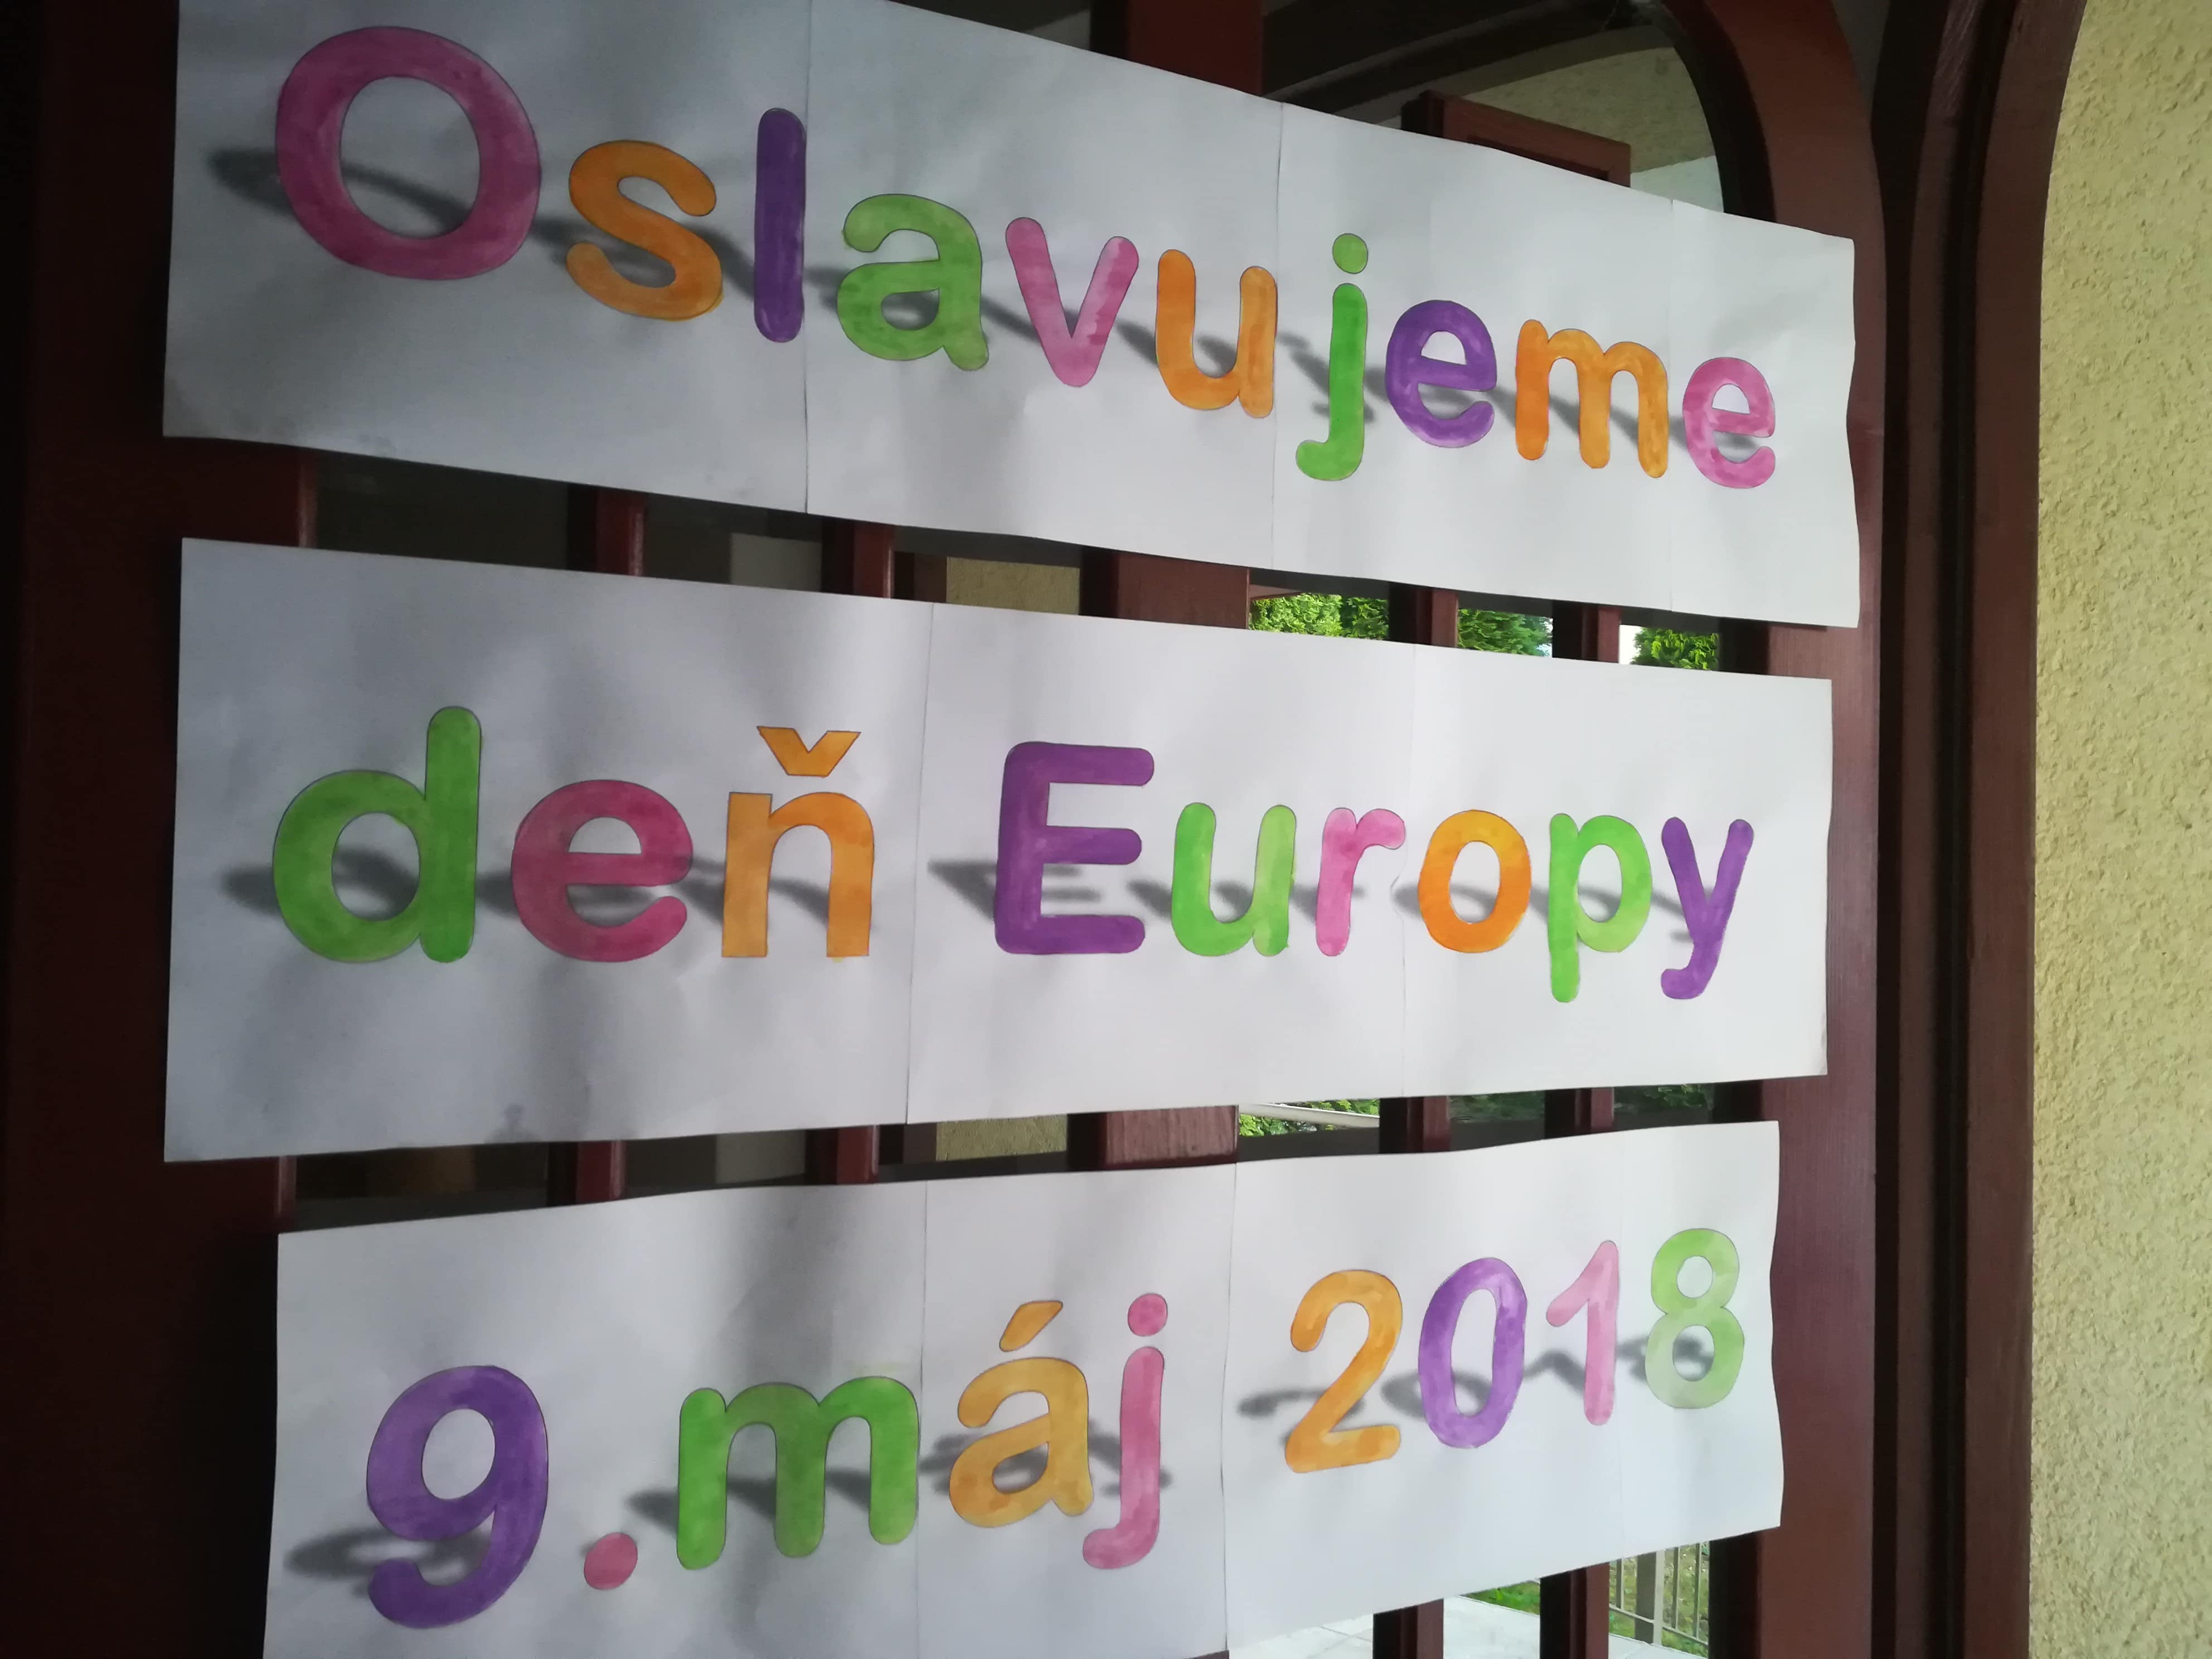 Oslavujeme
deň Europy
9.máj 2018